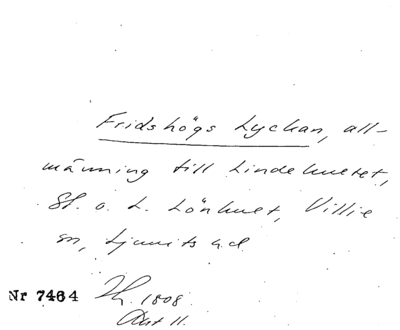 Fridshögs Lyckan, all-
männing till Lindehultet,
St. o. L. Lönhult, Villie
sn, Ljunits hd
Nr 7464 1808.
Akt 11.